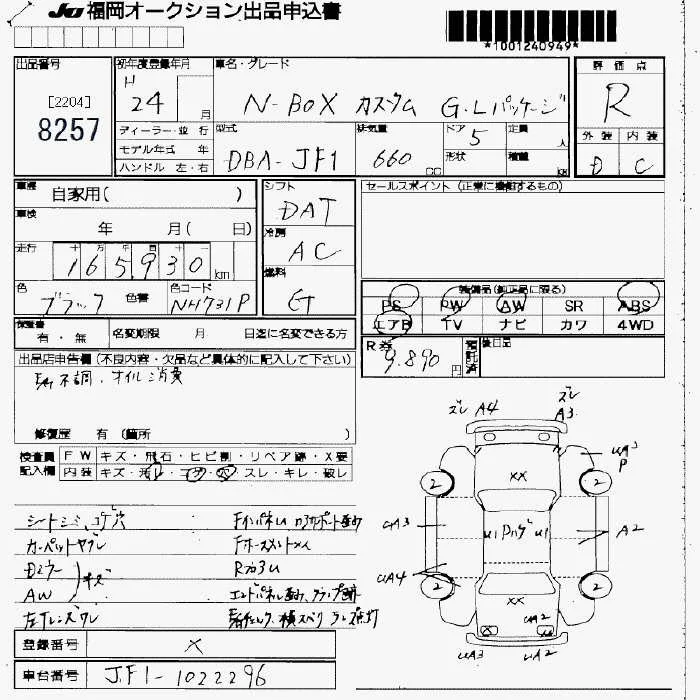 JU 福岡オークション出品申込書
*1001240949*
出品番号
[2204]
8257
初年度登録年月
H
24 月
車名・グレード
N-BOX カスタム G.Lパッケージ
評価点
R
外装 内装
D C
ディーラー・並 行
モデル年式 年
ハンドル 左・右
型式
DBA-JF1
排気量
660 CC
ドア 5
形状
定員 人
積載 KG
車歴
自家用( )
車検
年 月( 日)
走行
十 万 千 百 十 一
165,930 km
色
ブラック 色替
色コード
NH731P
シフト
DAT
冷房
AC
燃料
G
セールスポイント (正常に機能するもの)
装備品(純正品に限る)
PS PW AW SR ABS
エアB TV ナビ カワ 4WD
保証書
有・無
名変期限 月 日迄に名変できる方
R券
9,890 円
預託済
後日品
出品店申告欄(不良内容・欠品など具体的に記入して下さい)
不調、オイル消費
修復歴 有 (箇所 )
検査員記入欄
FW キズ・飛石・ヒビ割・リペア跡・X要
内装 キズ・スレ・キレ・破レ
シートシミ、コゲ穴
カーペットヤブレ
Dミラー キズ
AW
左Tレンズワレ
ズレ A4
ズレ A3
UA3 P
XX
2 2
UA3
U1 Pハゲ U1
A2
UA4
2 2
XX
UA2
UA3 UA2
登録番号 X
車台番号 JF1-1022296